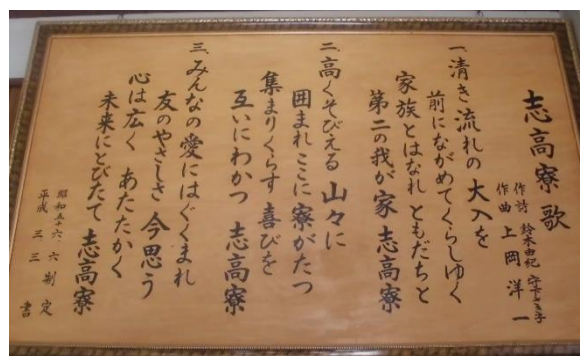 志高寮歌
作詩 鈴木由紀
作曲 上岡洋一
一、清き流れの大入を
前にながめてくらしゆく
家族とはなれともだちと
第二の我が家 志高寮
二、高くそびえる山々に
囲まれここに寮がたつ
集まりくらす喜びを
互いにわかつ 志高寮
三、みんなの愛にはぐくまれ
友のやさしさ今思う
心は広く あたたかく
未来にとびたて 志高寮
昭和五六、六 制定
平成 三、三 書